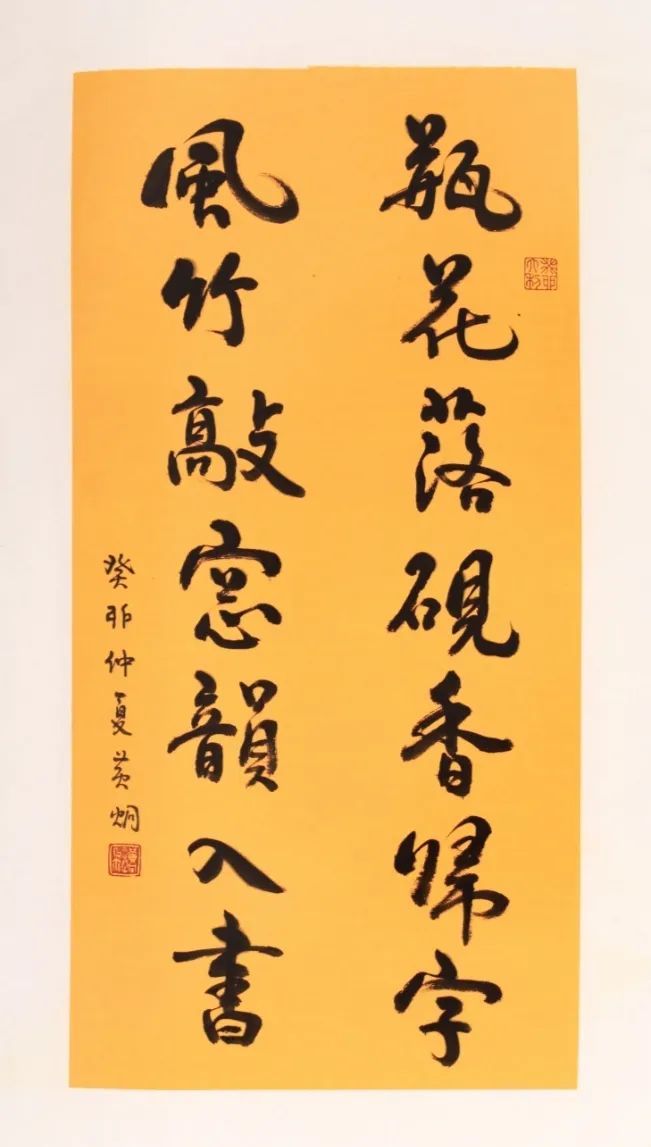 瓶花落硯香歸字
風竹敲窓韻入書
癸卯仲夏黃炯